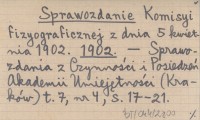 Sprawozdanie Komisyi
fizyograficznej z dnia 5 kwiet-
nia 1902. 1902. — Sprawo-
zdania z Czynności i Posiedzeń
Akademii Umiejętności (Kra-
ków) t. 7, nr 4, s. 17-21.